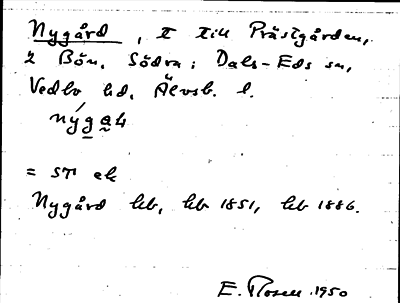 Nygård, t till Prästgården,
2 Bön, Södra; Dals-Eds sn,
Vedbo hd, Älvsb. l.
nýgaɥ
= ST ek
Nygård hb, hb 1851, hb 1886.
E. Rosen 1950